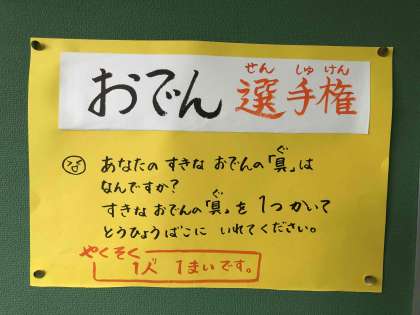 せんしゅけん
おでん選手権
あなたの すきな おでんの「具」は
なんですか?
すきな おでんの「具」を 1つ かいて
とうひょうばこに いれてください。
やくそく
1人 1まいです。